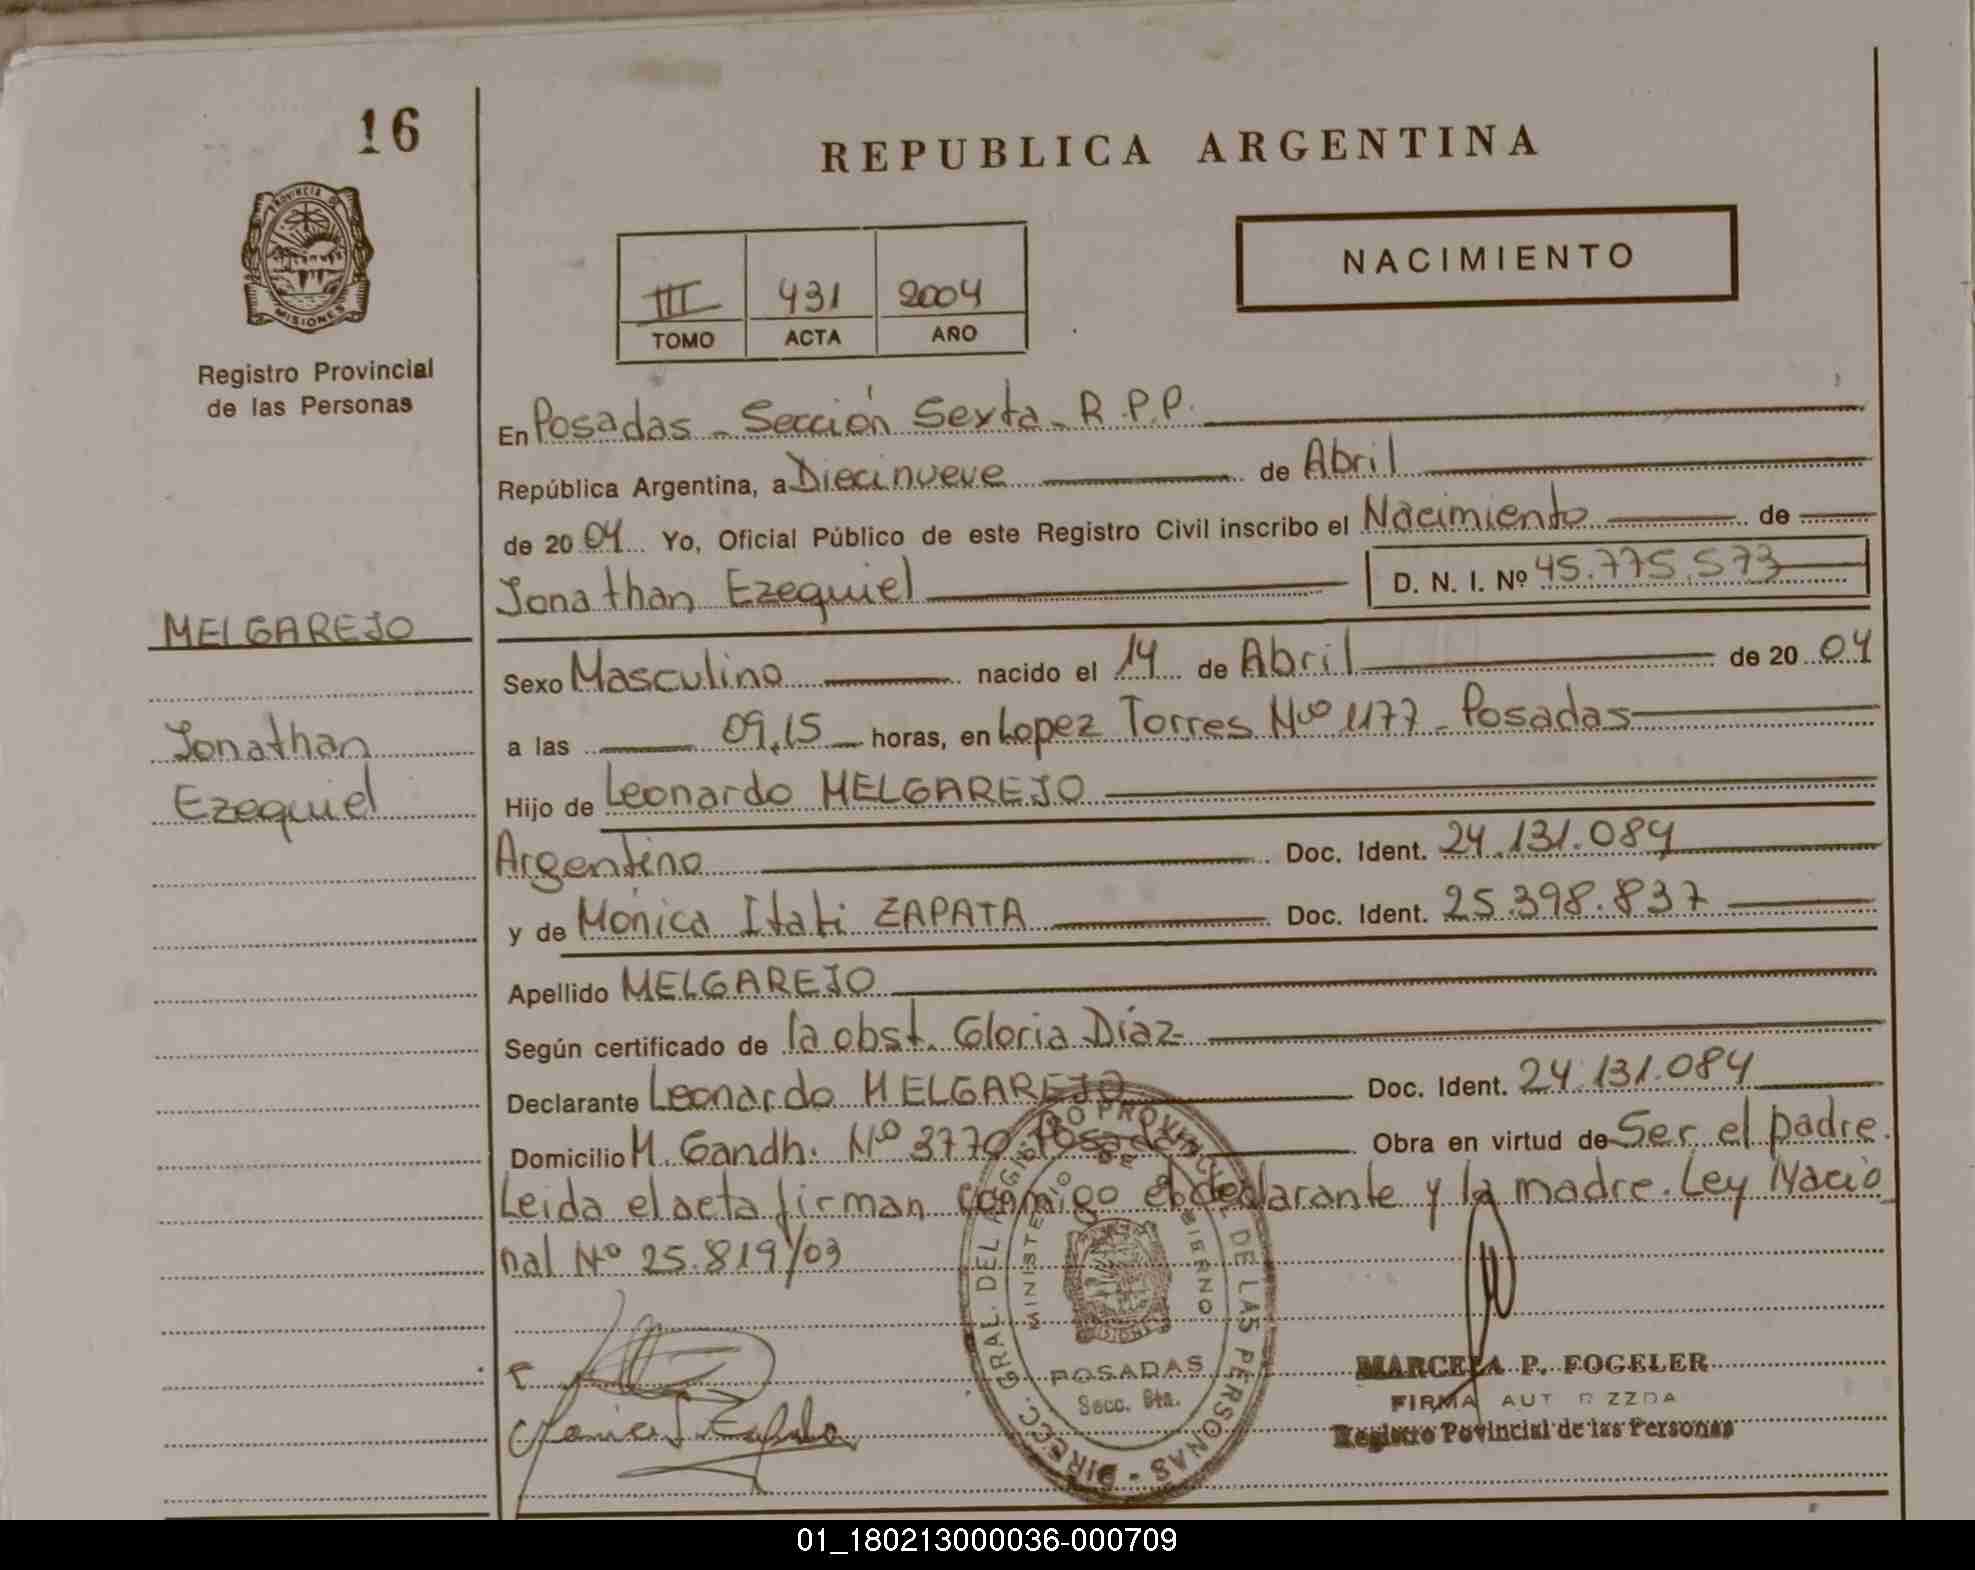 16
PROVINCIA DE
MISIONES
Registro Provincial
de las Personas
MELGAREJO
Jonathan
Ezequiel
REPUBLICA ARGENTINA
III 431 2004
TOMO ACTA AÑO
NACIMIENTO
En Posadas - Sección Sexta - R.P.P.
República Argentina, a Diecinueve de Abril
de 2004 Yo, Oficial Público de este Registro Civil inscribo el Nacimiento de
Jonathan Ezequiel D. N. I. Nº 45.775.573
Sexo Masculino nacido el 14 de Abril de 2004
a las 09,15 horas, en Lopez Torres Nro 1177 - Posadas
Hijo de Leonardo MELGAREJO
Argentino Doc. Ident. 24.131.084
y de Mónica Itati ZAPATA Doc. Ident. 25.398.837
Apellido MELGAREJO
Según certificado de la obst. Gloria Díaz
Declarante Leonardo MELGAREJO Doc. Ident. 24.131.084
Domicilio M. Gandhi Nº 3770 Posadas Obra en virtud de Ser el padre.
Leida el acta firman conmigo el declarante y la madre. Ley Nacio
nal Nº 25.819/03
DIRECC. GRAL. DEL REGISTRO PROVINCIAL DE LAS PERSONAS
MINISTERIO DE GOBIERNO
MISIONES
POSADAS
Secc. 6ta.
MARCELA P. FOGELER
FIRMA AUTORIZZDA
Registro Povincial de las Personas
01_180213000036-000709